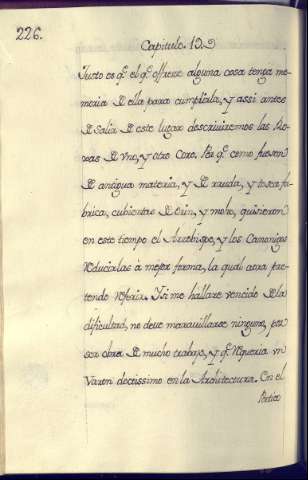 226.
Capitulo. 19.
Justo es q̃. el q̃. offrece alguna cosa tenga me-
moria de ella para cumplirla, y assi antes
de salir de este lugar descriuiremos las
de vno, y otro Coro. Por q̃. como fuesen
de antigua materia, y de rauda, y tosca fa-
brica, cubiertas de orin, y moho, quisieron
en este tiempo el Arzobispo, y los Canonigos
reducirlas à mejor forma, la qual aora pre-
tendo referir. Y si me hallare vencido de la
dificultad, no deve marauillarse ninguno, por
ser obra de mucho trabajo, y q̃. requeria vn
Varon doctissimo en la Architectura. Con el
Portico